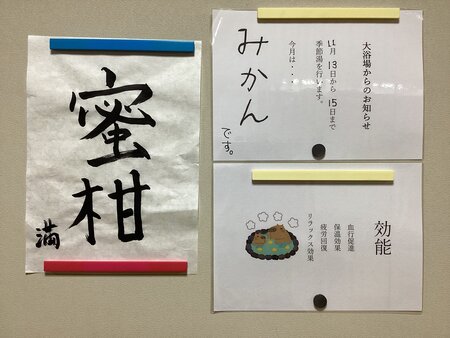 蜜柑
満
大浴場からのお知らせ
11月13日から15日まで
季節湯を行います。
今月は・・・
みかん
です。
効能
血行促進
保温効果
疲労回復
リラックス効果